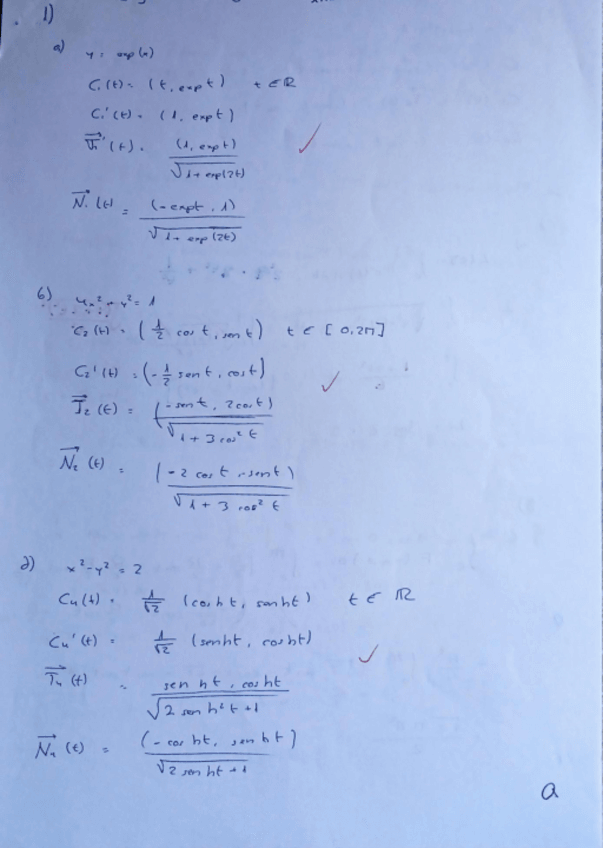 1)
a) y = exp(x)
C₁(t) = (t, exp t) t ∈ ℝ
C₁'(t) = (1, exp t)
T₁(t) = (1, exp t) / √(1 + exp(2t))
N₁(t) = (-exp t, 1) / √(1 + exp(2t))
b) 4x² + y² = 1
C₂(t) = (1/2 cos t, sen t) t ∈ [0, 2π]
C₂'(t) = (-1/2 sen t, cos t)
T₂(t) = (-sen t, 2cos t) / √(1 + 3 cos² t)
N₂(t) = (-2 cos t, -sen t) / √(1 + 3 cos² t)
d) x² - y² = 2
C₄(t) = 1/√2 (cosh t, senh t) t ∈ ℝ
C₄'(t) = 1/√2 (senh t, cosh t)
T₄(t) = senh t, cosh t / √(2 senh² t + 1)
N₄(t) = (-cosh t, senh t) / √(2 senh t + 1)
a